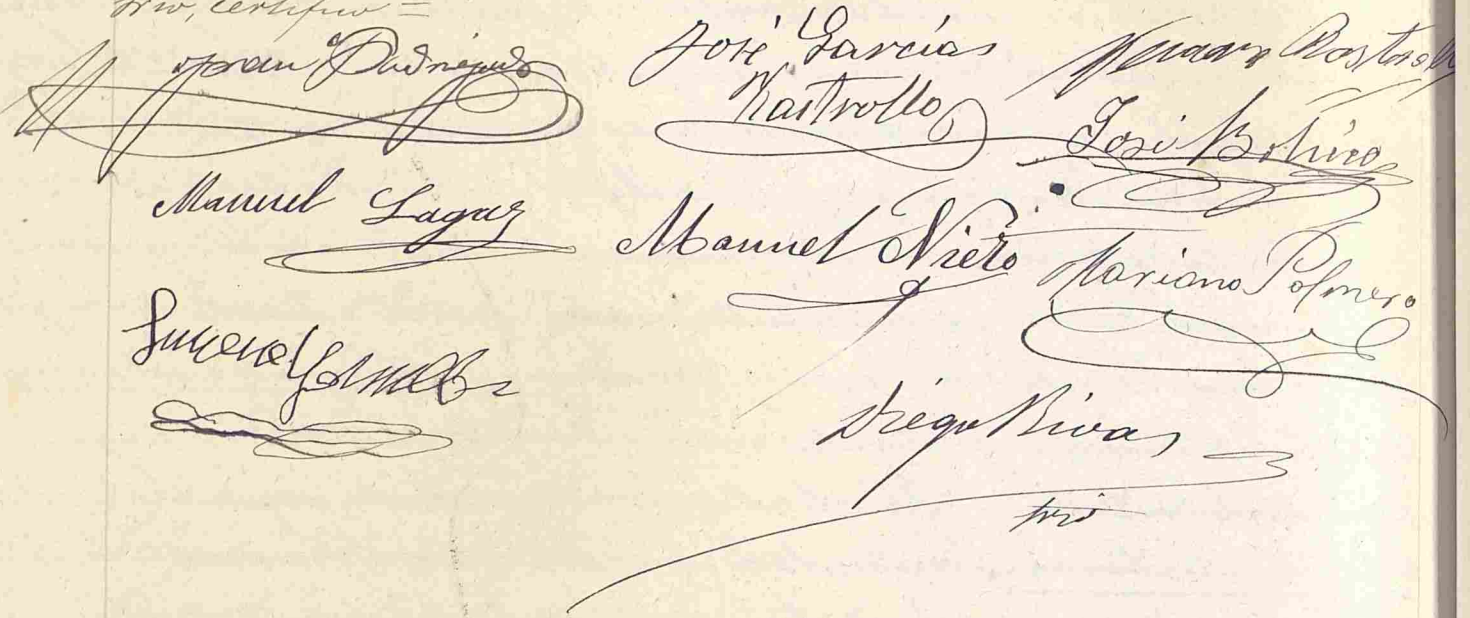 srio, certifico =
Juan Rodriguez
José García
Rastrollo
Rastrollo
José Botino
Manuel Lagar
Manuel Nieto
Mariano Polmero
Diego Rivas
srio